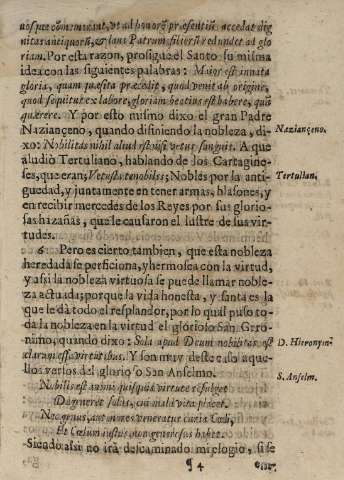 nosque commemorant, ut ad honorẽ præsentiũ accedat dig
nitas antiquorũ, & laus Patrum filiorũ redundet ad glo
riam. Por esta razon, prosigue el Santo su misma
idea con las siguientes palabras: Maior est innata
gloria, quam quæsita præcedit, quod venit ab origine,
quod sequitur ex labore, gloriam beatius est habere, quã
quærere. Y por esto mismo dixo el gran Padre
Naziançeno, quando difiniendo la nobleza, di-
Naziançeno.
xo: Nobilitas nihil aliud est nisi vetus sanguis. A que
aludiò Tertuliano, hablando de los Cartagine-
Tertulian.
ses, que eran; Vetusta nobiles; Nobles por la anti-
guedad, y juntamente en tener armas, blasones, y
en recibir mercedes de los Reyes por sus glorio-
sas hazañas, que le causaron el lustre de sus vir-
tudes.
6 Pero es cierto tambien, que esta nobleza
heredada se perficiona, y hermosea con la virtud,
y assi la nobleza virtuosa se puede llamar noble-
za actuada; porque la vida honesta, y santa es la
que le dà todo el resplandor, por lo qual puso to-
da la nobleza en la virtud el glorioso San Gero-
nimo, quando dixo: Sola apud Deum nobilitas est
D. Hieronym.
claram esse virtutibus. Y son muy deste caso aque-
llos versos del glorioso San Anselmo.
S. Anselm.
Nobilis est animi quisquis virtute refulget
Degener est solus, cui mala vita placet.
Nec genus, aut mores veneratur curia Cœli,
Et Cœlum iustus, non generosus habet.
Siendo assi no irà descaminado mi elogio, si se
¶ 4